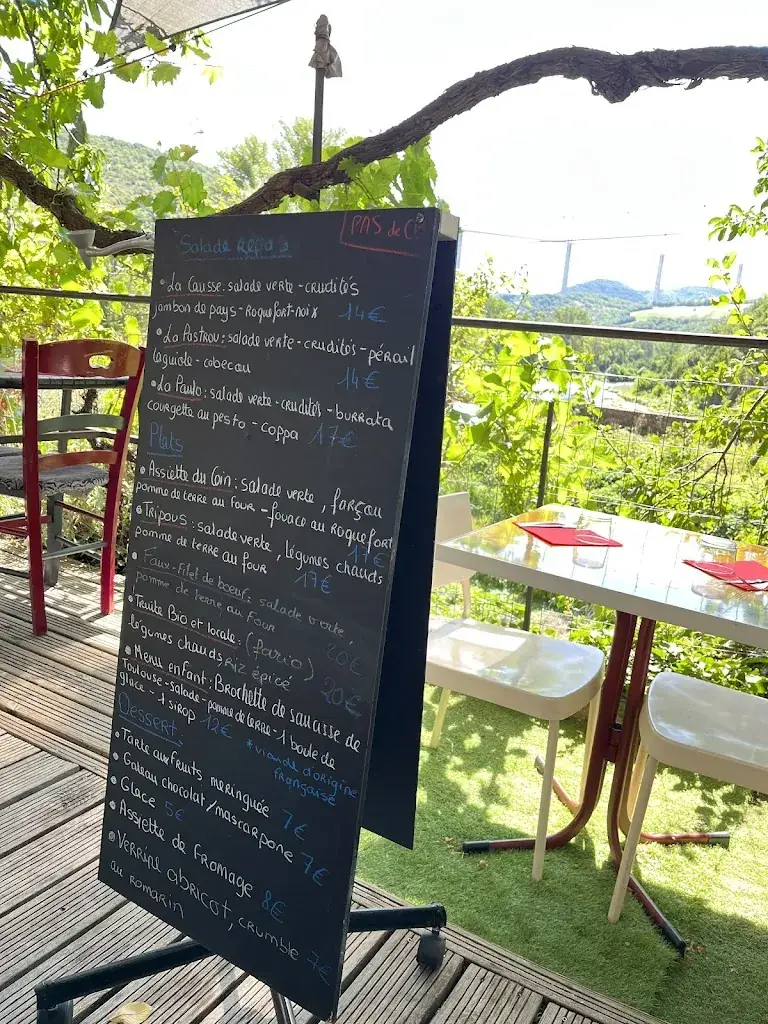 Salade Repas
PAS de CB
• La Causse: salade verte - crudités
jambon de pays - Roquefort - noix 14€
• La Pastrou: salade verte - crudités - pérail
laguiole - cabecou 14€
• La Paulo: salade verte - crudités - burrata
courgette au pesto - coppa 17€
Plats
• Assiette du Coin: salade verte, farçou
pomme de terre au four - fouace au Roquefort 17€
• Tripous: salade verte, légumes chauds
pomme de terre au four 17€
• Faux-filet de boeuf: salade verte,
pomme de terre au four 20€
• Truite Bio et locale: (fario)
légumes chauds Riz épicé 20€
• Menu enfant: Brochette de saucisse de
Toulouse - salade - pomme de terre - 1 boule de
glace - 1 sirop 12€ *viande d'origine
française
Dessert:
• Tarte aux fruits meringuée 7€
• Gateau chocolat/mascarpone 7€
• Glace 5€
• Assiette de fromage 8€
• Verrine abricot, crumble
au romarin 7€